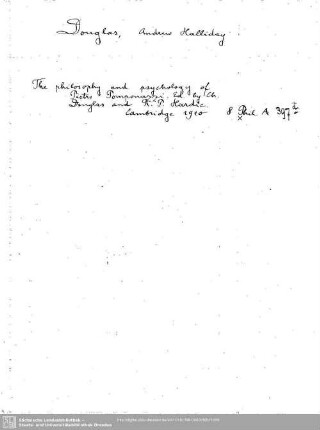 Douglas, Andrew Halliday.
The philosophy and psychology of
Pietro Pomponazzi ed. by Ch.
Douglas and R. P. Hardie.
Cambridge 1910 8 Phil. A 397
Sächsische Landesbibliothek -
Staats- und Universitätsbibliothek Dresden